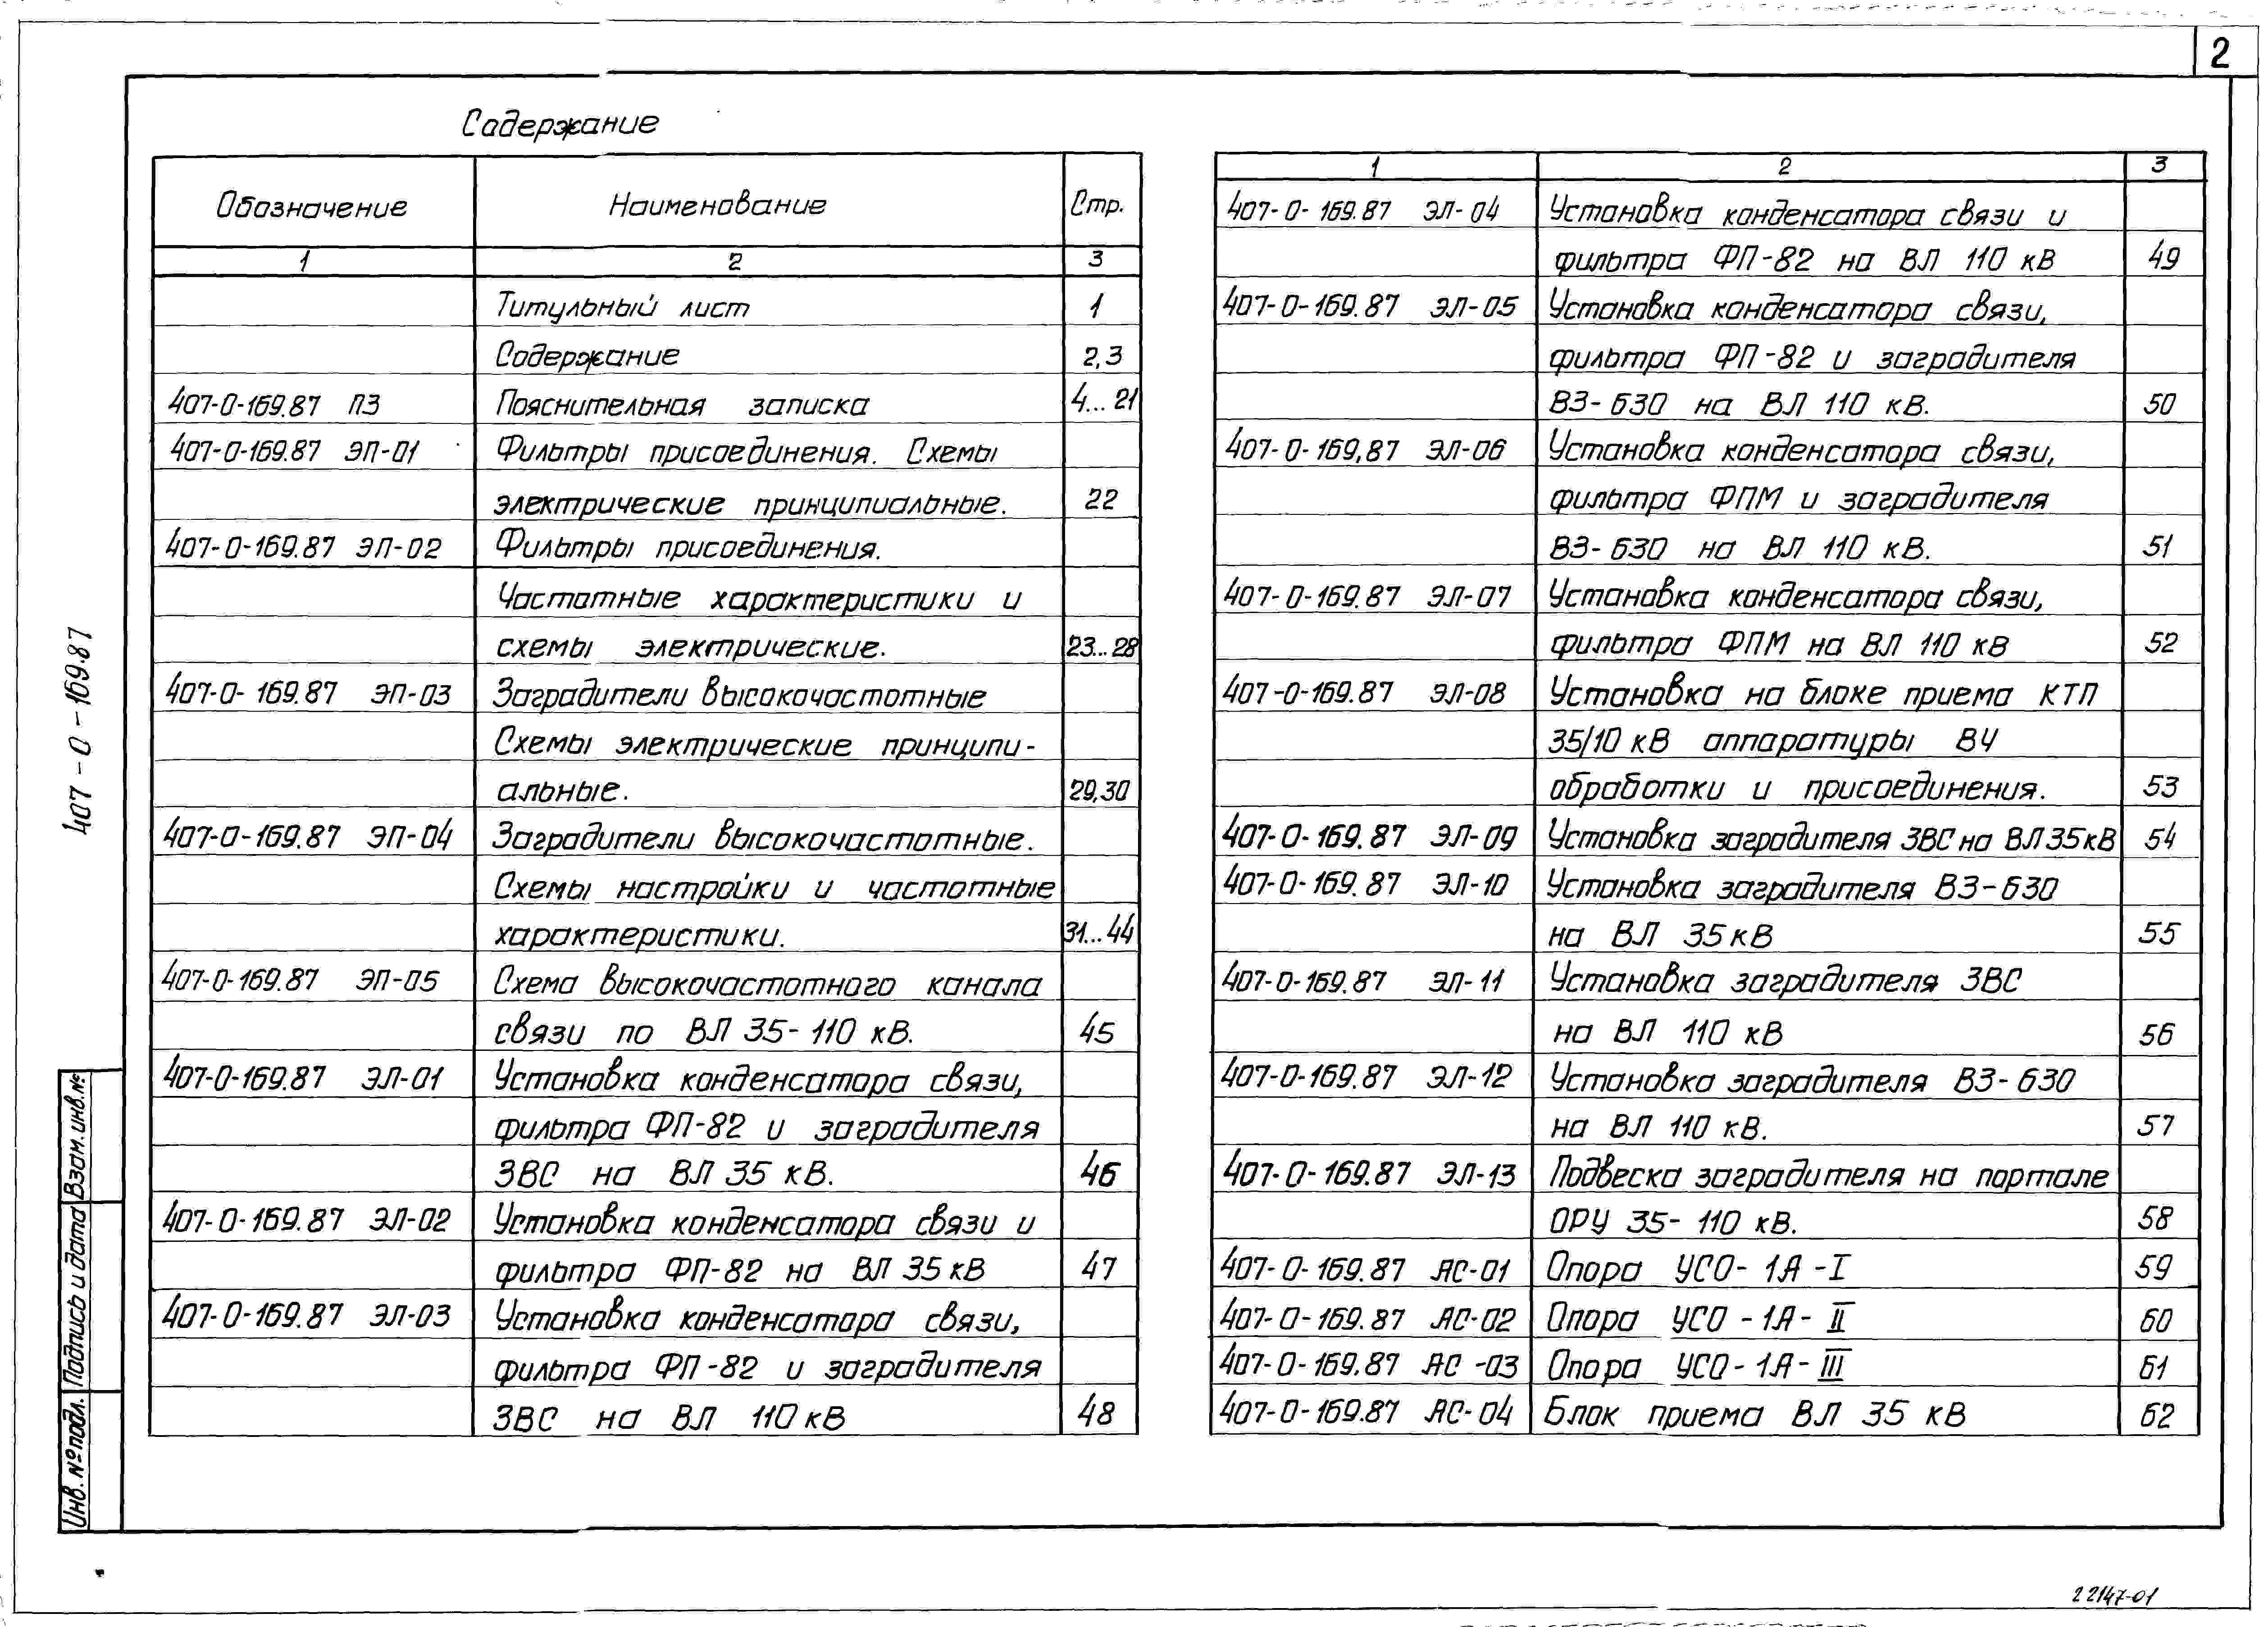 2
Содержание
Обозначение Наименование Стр.
1 2 3
Титульный лист 1
Содержание 2,3
407-0-169.87 ПЗ Пояснительная записка 4...21
407-0-169.87 ЭП-01 Фильтры присоединения. Схемы
электрические принципиальные. 22
407-0-169.87 ЭП-02 Фильтры присоединения.
Частотные характеристики и
схемы электрические. 23...28
407-0-169.87 ЭП-03 Заградители высокочастотные
Схемы электрические принципи-
альные. 29,30
407-0-169.87 ЭП-04 Заградители высокочастотные.
Схемы настройки и частотные
характеристики. 31...44
407-0-169.87 ЭП-05 Схема высокочастотного канала
связи по ВЛ 35-110 кВ. 45
407-0-169.87 ЭЛ-01 Установка конденсатора связи,
фильтра ФП-82 и заградителя
ЗВС на ВЛ 35 кВ. 46
407-0-169.87 ЭЛ-02 Установка конденсатора связи и
фильтра ФП-82 на ВЛ 35 кВ 47
407-0-169.87 ЭЛ-03 Установка конденсатора связи,
фильтра ФП-82 и заградителя
ЗВС на ВЛ 110 кВ 48
1 2 3
407-0-169.87 ЭЛ-04 Установка конденсатора связи и
фильтра ФП-82 на ВЛ 110 кВ 49
407-0-169.87 ЭЛ-05 Установка конденсатора связи,
фильтра ФП-82 и заградителя
ВЗ-630 на ВЛ 110 кВ. 50
407-0-169,87 ЭЛ-06 Установка конденсатора связи,
фильтра ФПМ и заградителя
ВЗ-630 на ВЛ 110 кВ. 51
407-0-169.87 ЭЛ-07 Установка конденсатора связи,
фильтра ФПМ на ВЛ 110 кВ 52
407-0-169.87 ЭЛ-08 Установка на блоке приема КТП
35/10 кВ аппаратуры ВЧ
обработки и присоединения. 53
407-0-169.87 ЭЛ-09 Установка заградителя ЗВС на ВЛ 35 кВ 54
407-0-169.87 ЭЛ-10 Установка заградителя ВЗ-630
на ВЛ 35 кВ 55
407-0-169.87 ЭЛ-11 Установка заградителя ЗВС
на ВЛ 110 кВ 56
407-0-169.87 ЭЛ-12 Установка заградителя ВЗ-630
на ВЛ 110 кВ. 57
407-0-169.87 ЭЛ-13 Подвеска заградителя на портале
ОРУ 35-110 кВ. 58
407-0-169.87 АС-01 Опора УСО-1А-I 59
407-0-169.87 АС-02 Опора УСО-1А-II 60
407-0-169.87 АС-03 Опора УСО-1А-III 61
407-0-169.87 АС-04 Блок приема ВЛ 35 кВ 62
407-0-169.87
Взам. инв. №
Подпись и дата
Инв. № подл.
22147-01